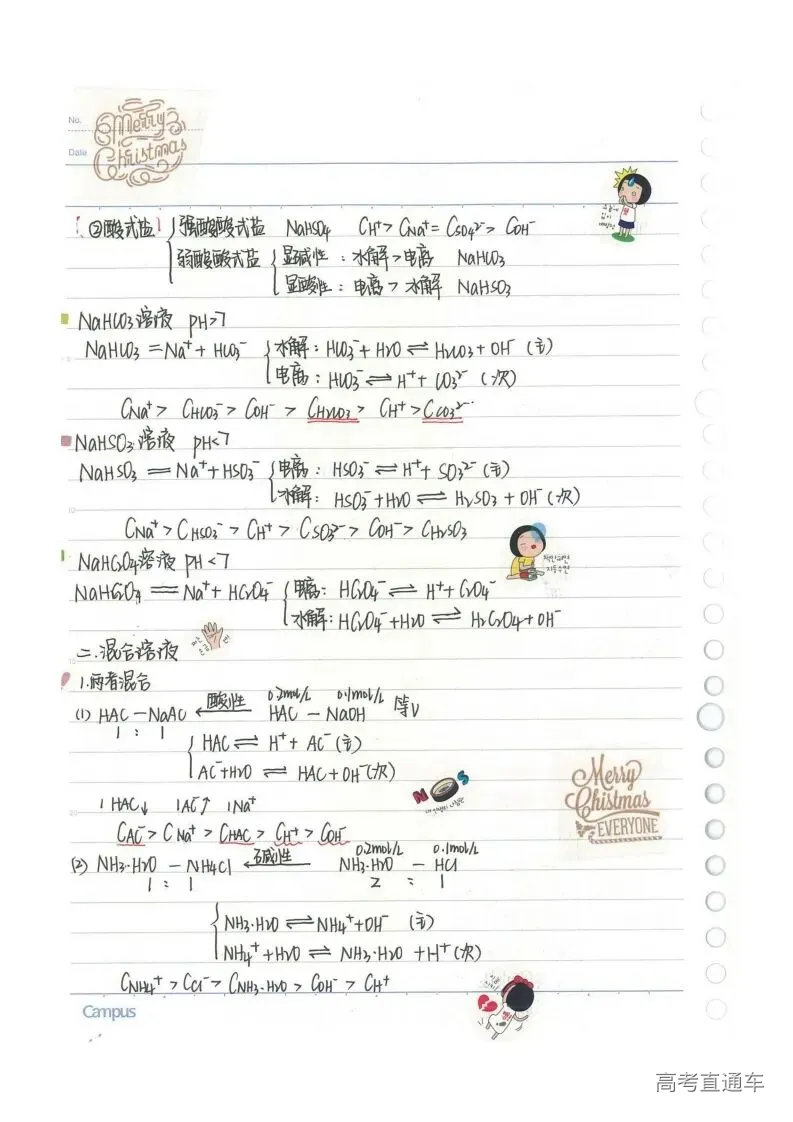 No.
Merry Christmas
Date
②酸式盐 { 强酸酸式盐 NaHSO4 CH⁺ > CNa⁺ = CSO4²⁻ > COH⁻
弱酸酸式盐 { 显碱性：水解>电离 NaHCO3
显酸性：电离>水解 NaHSO3
NaHCO3溶液 pH>7
NaHCO3 = Na⁺ + HCO3⁻ { 水解：HCO3⁻ + H2O ⇌ H2CO3 + OH⁻ (主)
电离：HCO3⁻ ⇌ H⁺ + CO3²⁻ (次)
CNa⁺ > CHCO3⁻ > COH⁻ > CH2CO3 > CH⁺ > CCO3²⁻
NaHSO3溶液 pH<7
NaHSO3 = Na⁺ + HSO3⁻ { 电离：HSO3⁻ ⇌ H⁺ + SO3²⁻ (主)
水解：HSO3⁻ + H2O ⇌ H2SO3 + OH⁻ (次)
CNa⁺ > CHSO3⁻ > CH⁺ > CSO3²⁻ > COH⁻ > CH2SO3
NaHCrO4溶液 pH<7
NaHCrO4 = Na⁺ + HCrO4⁻ { 电离：HCrO4⁻ ⇌ H⁺ + CrO4⁻
水解：HCrO4⁻ + H2O ⇌ H2CrO4 + OH⁻
二.混合溶液
1.两者混合
(1) HAC — NaAC ←酸性 0.2mol/L HAC — 0.1mol/L NaOH 等V
1 : 1
{ HAC ⇌ H⁺ + AC⁻ (主)
AC⁻ + H2O ⇌ HAC + OH⁻ (次)
N S
1HAC↓ 1AC⁻↑ 1Na⁺
CAC⁻ > CNa⁺ > CHAC > CH⁺ > COH⁻
Merry Chistmas EVERYONE
(2) NH3·H2O — NH4Cl ←碱性 0.2mol/L NH3·H2O — 0.1mol/L HCl
1 : 1 2 : 1
{ NH3·H2O ⇌ NH4⁺ + OH⁻ (主)
NH4⁺ + H2O ⇌ NH3·H2O + H⁺ (次)
CNH4⁺ > CCl⁻ > CNH3·H2O > COH⁻ > CH⁺
Campus
高考直通车